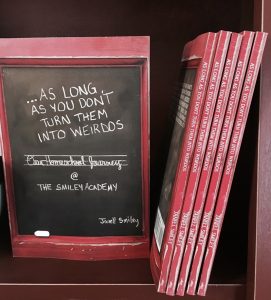 ...AS LONG
AS YOU DON'T
TURN THEM
INTO WEIRDOS
Our Homeschool Journey
@
THE SMILEY ACADEMY
Janell Smiley
AS LONG AS YOU DON'T TURN THEM INTO WEIRDOS
AS LONG AS YOU DON'T TURN THEM INTO WEIRDOS
AS LONG AS YOU DON'T TURN THEM INTO WEIRDOS
AS LONG AS YOU DON'T TURN THEM INTO WEIRDOS
AS LONG AS YOU DON'T TURN THEM INTO WEIRDOS